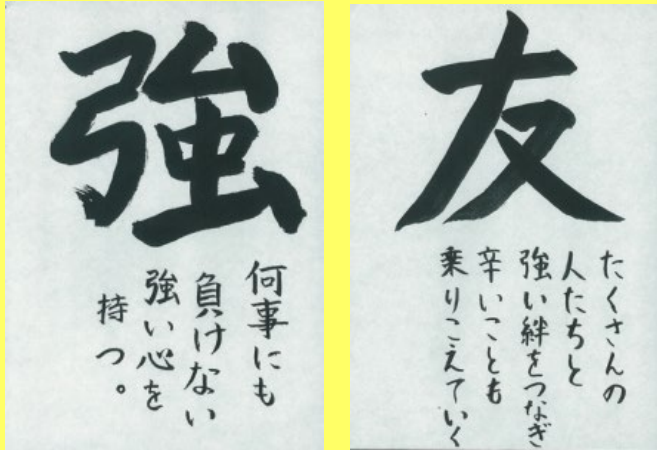 強
何事にも
負けない
強い心を
持つ。
友
たくさんの
人たちと
強い絆をつなぎ
辛いことも
乗りこえていく